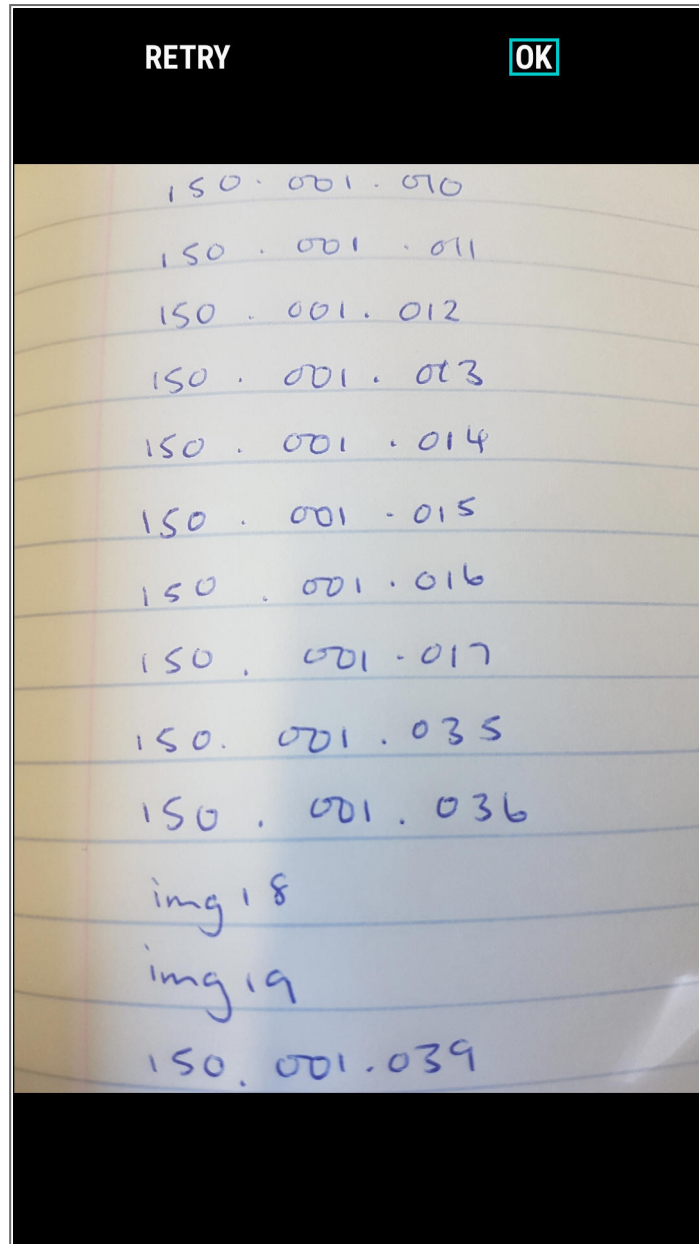 RETRY OK
150.001.010
150.001.011
150.001.012
150.001.013
150.001.014
150.001-015
150.001.016
150.001-017
150.001.035
150.001.036
img 18
img 19
150.001.039